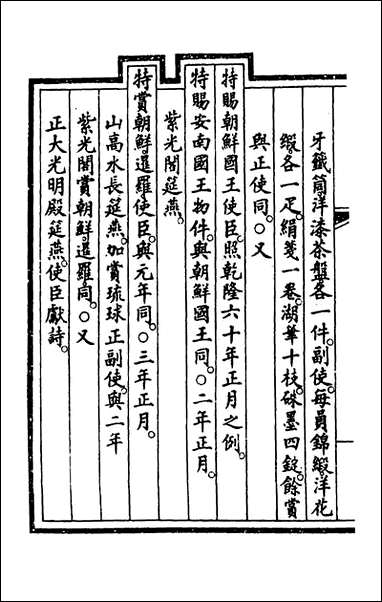 牙籤筒洋漆茶盤各一件。副使每員錦緞洋花
緞各一疋。絹箋一卷。湖筆十枝。硃墨四錠。餘賞
與正使同。○又
特賜朝鮮國王使臣。照乾隆六十年正月之例。
特賜安南國王物件。與朝鮮國王同。○二年正月。
紫光閣筵燕。
特賞朝鮮暹羅使臣。與元年同。○三年正月。
山高水長筵燕。加賞琉球正副使。與二年
紫光閣賞朝鮮暹羅同。○又
正大光明殿筵燕。使臣獻詩。